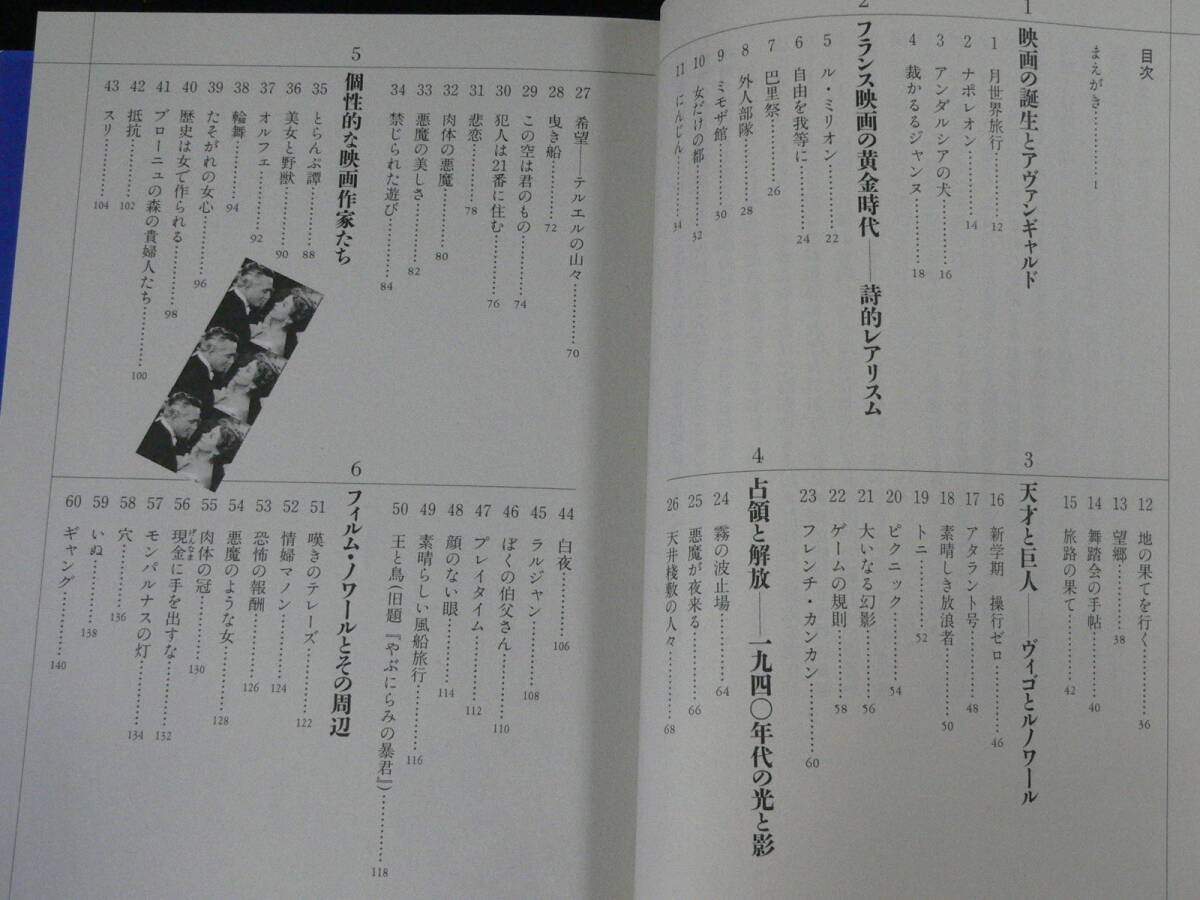 目次
まえがき…………1
1 映画の誕生とアヴァンギャルド
1 月世界旅行…………12
2 ナポレオン…………14
3 アンダルシアの犬…………16
4 裁かるるジャンヌ…………18
2 フランス映画の黄金時代――詩的レアリスム
5 ル・ミリオン…………22
6 自由を我等に…………24
7 巴里祭…………26
8 外人部隊…………28
9 ミモザ館…………30
10 女だけの都…………32
11 にんじん…………34
12 地の果てを行く…………36
13 望郷…………38
14 舞踏会の手帖…………40
15 旅路の果て…………42
3 天才と巨人――ヴィゴとルノワール
16 新学期 操行ゼロ…………46
17 アタラント号…………48
18 素晴しき放浪者…………50
19 トニ…………52
20 ピクニック…………54
21 大いなる幻影…………56
22 ゲームの規則…………58
23 フレンチ・カンカン…………60
4 占領と解放――一九四〇年代の光と影
24 霧の波止場…………64
25 悪魔が夜来る…………66
26 天井棧敷の人々…………68
27 希望――テルエルの山々…………70
28 曳き船…………72
29 この空は君のもの…………74
30 犯人は21番に住む…………76
31 悲恋…………78
32 肉体の悪魔…………80
33 悪魔の美しさ…………82
34 禁じられた遊び…………84
5 個性的な映画作家たち
35 とらんぷ譚…………88
36 美女と野獣…………90
37 オルフェ…………92
38 輪舞…………94
39 たそがれの女心…………96
40 歴史は女で作られる…………98
41 ブローニュの森の貴婦人たち…………100
42 抵抗…………102
43 スリ…………104
44 白夜…………106
45 ラルジャン…………108
46 ぼくの伯父さん…………110
47 プレイタイム…………112
48 顔のない眼…………114
49 素晴らしい風船旅行…………116
50 王と鳥（旧題『やぶにらみの暴君』）…………118
6 フィルム・ノワールとその周辺
51 嘆きのテレーズ…………122
52 情婦マノン…………124
53 恐怖の報酬…………126
54 悪魔のような女…………128
55 肉体の冠…………130
56 現金に手を出すな…………132
57 モンパルナスの灯…………134
58 穴…………136
59 いぬ…………138
60 ギャング…………140